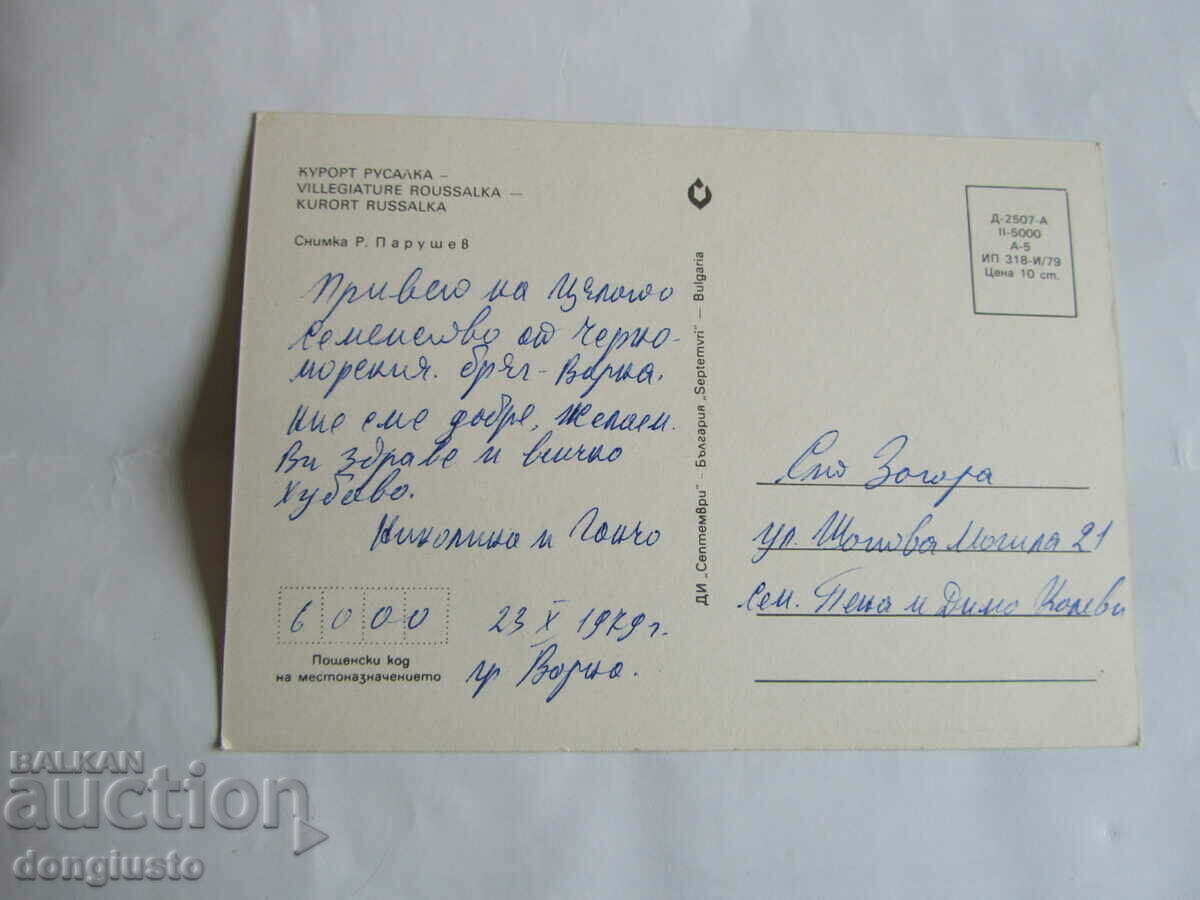 КУРОРТ РУСАЛКА –
VILLEGIATURE ROUSSALKA –
KURORT RUSSALKA
Снимка Р. Парушев
Привет на Цялото
Семейство от Черно-
морския. бряг - Варна.
Ние сме добре, Желаем.
Ви здраве и всичко
Хубаво.
Николина и Ганчо
6000
Пощенски код
на местоназначението
23 X 1979 г.
гр Варна.
ДИ „Септември" - България „Septemvri" — Bulgaria
Д-2507-А
II-5000
А-5
ИП 318-И/79
Цена 10 ст.
Загора
ул. Могила 21
Сем. Пена и Димо Колеви
BALKAN
auction
dongiusto